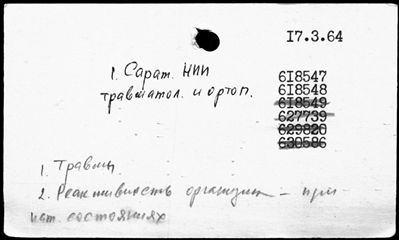 17.3.64
1. Сарат. НИИ
травматол. и ортоп.
618547
618548
618549
627739
629820
630586
1. Травмы.
2. Реактивность организм – при
пат. состояниях